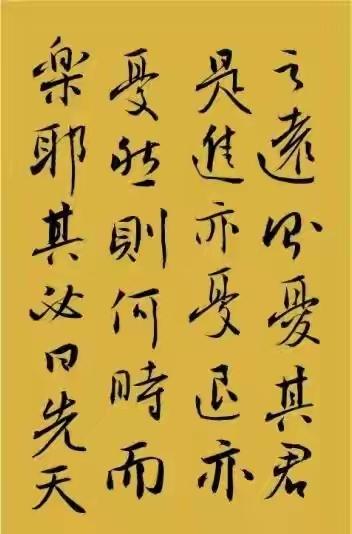 之遠則憂其君
是進亦憂退亦
憂然則何時而
樂耶其必曰先天